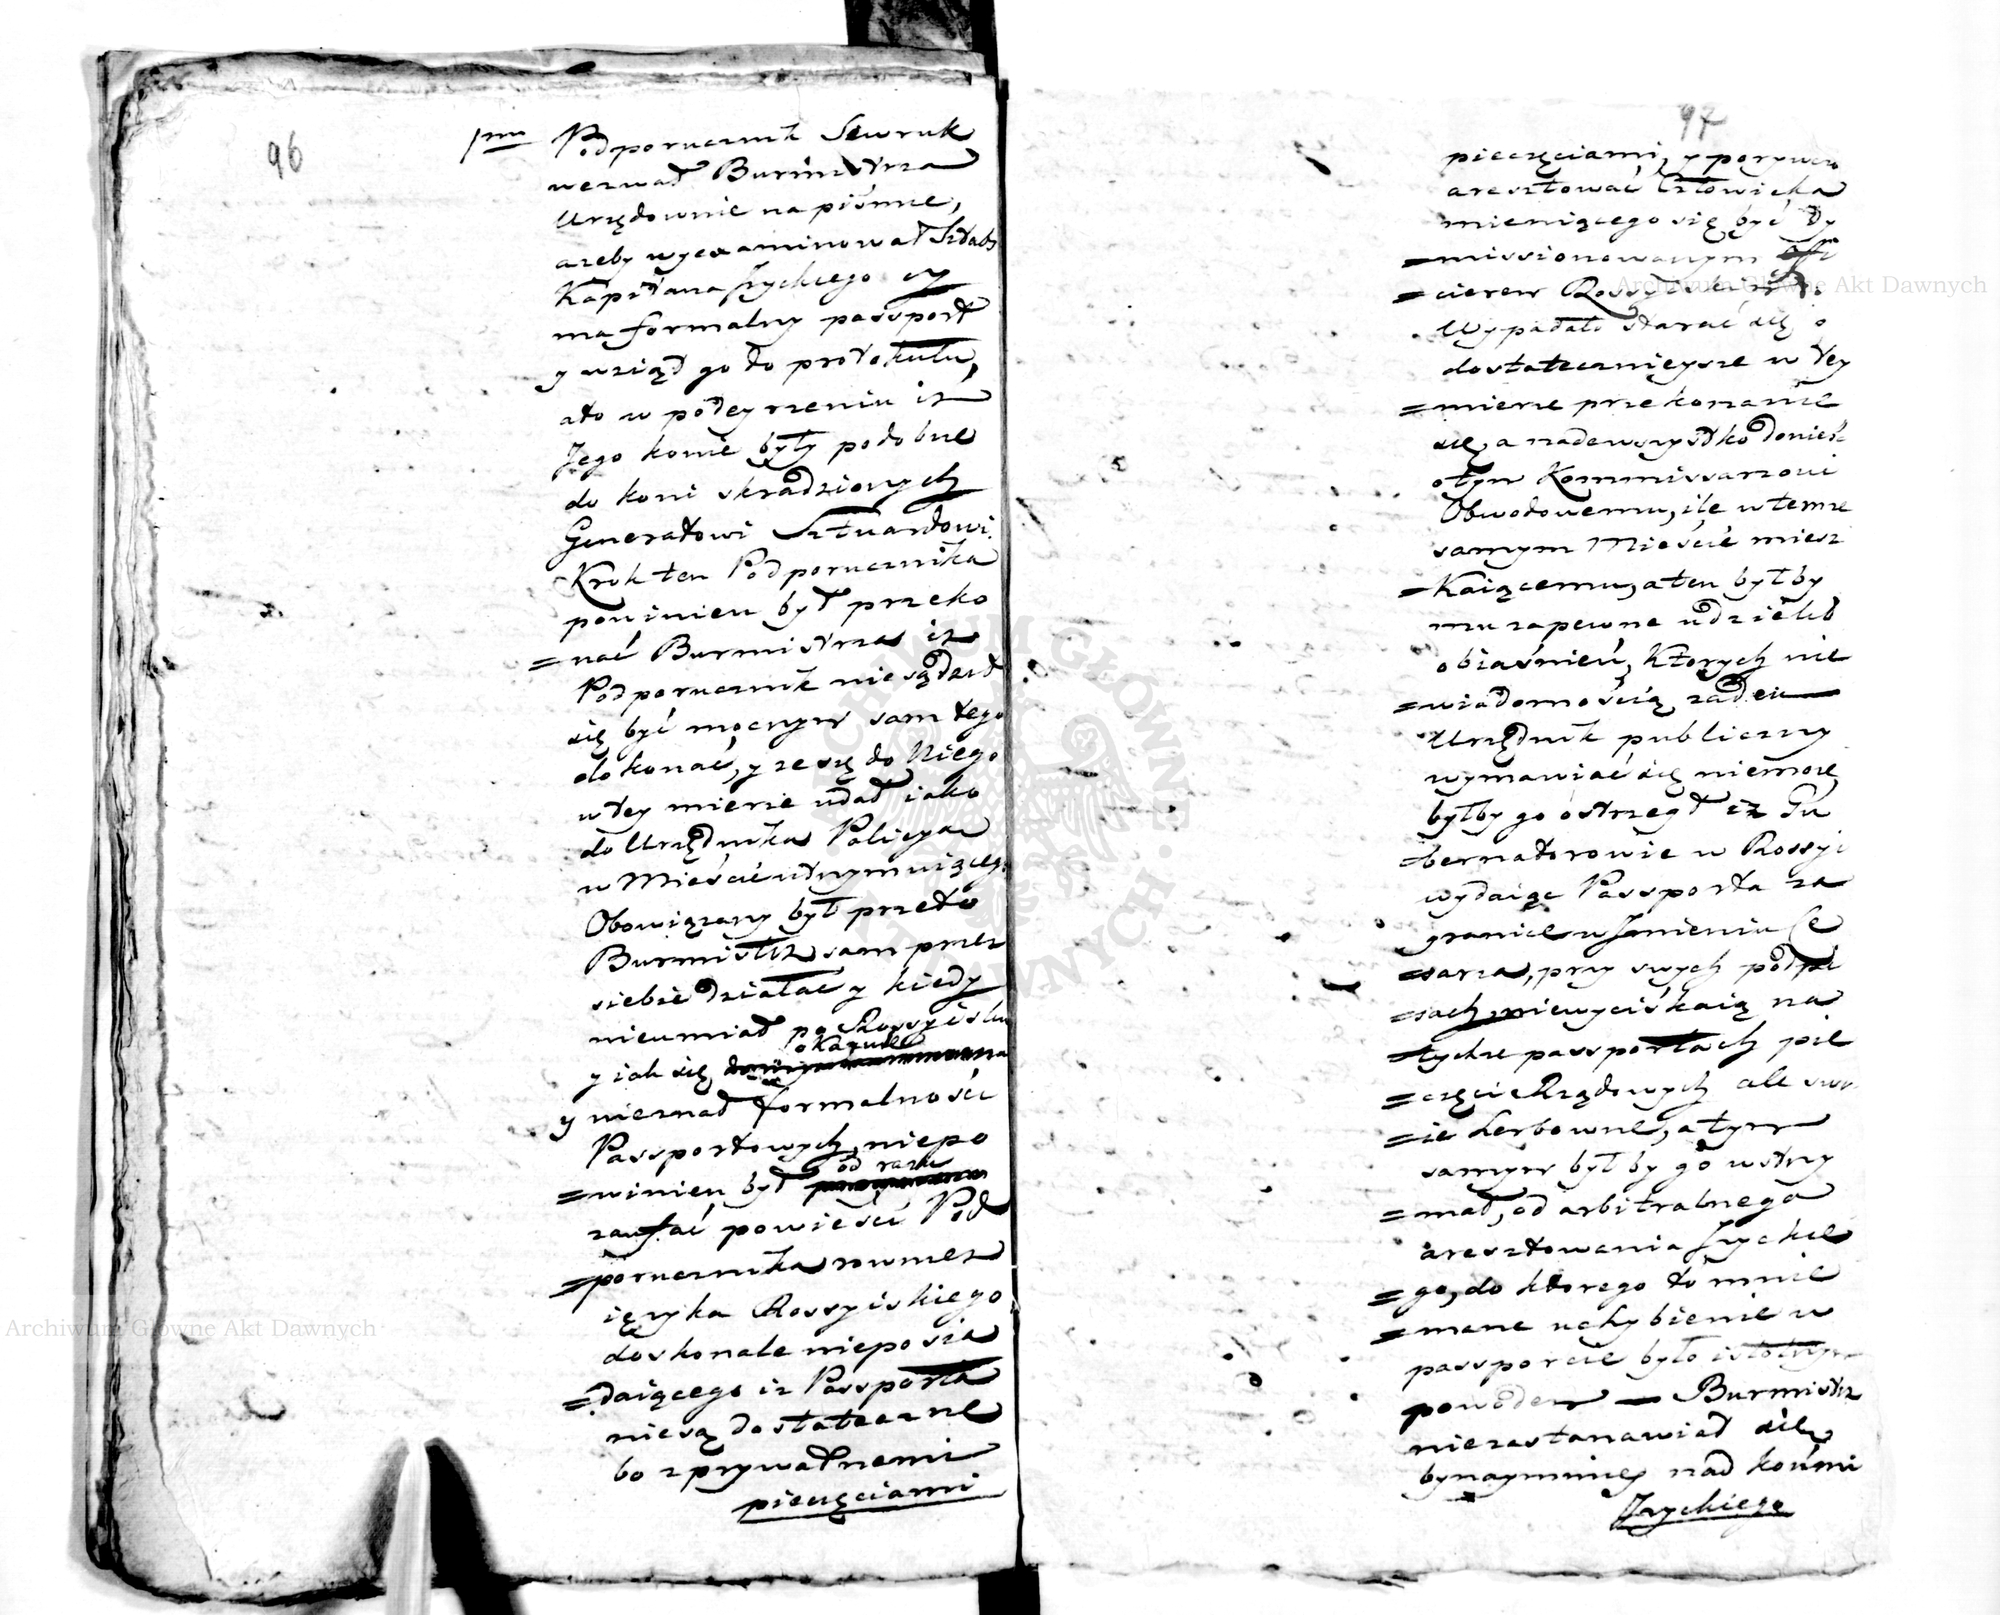 96
1mo Podporucznik Sewruk
wezwał Burmistrza
Urzędownie na piśmie,
azeby wyexaminował Sztabs
Kapitana Jzyckiego czy
ma formalny passport
y wziął go do protokułu,
ato w podeyrzeniu iz
Jego konie były podobne
do koni skradzionych
Generałowi Sztuardowi.
Krok ten Podporucznika
powinien był przeko
=nać Burmistrza iz
Podporucznik nie sądził
się być mocnym sam tego
dokonać, y ze się do Niego
w tey mierze udał iako
do Urzędnika Policya
w Mieście utrzymuiącego
Obowiązany był przeto
Burmistrz sam przez
siebie działać y kiedy
nieumiał po Rossyisku
okazuie
y iak się
y nieznał formalności
Passportowych, niepo
od razu
=winien był
zaufać powieści Pod
=porucznika rownież
ięzyka Rossyiskiego
doskonale nieposia
=daiącego iz Passporta
niesą dostateczne
bo z prywatnemi
pieczęciami
97
pieczęciami, y porywczo
aresztować Człowieka
mieniącego się być Dy
=missionowanym offi
=cierem Rossyiskim
Wypadało starać się o
dostatecznieysze w tey
=mierze przekonanie
się, a nadewszystko donieść
o tym Kommissarzowi
Obwodowemu, ile w temze
samym Mieście miesz
=kaiącemu, a ten byłby
mu zapewne udzielił
obiaśnień, Których nie
=wiadomością zaden
Urzędnik publiczny
wymawiać się niemoze,
byłby go ostrzegł iz Gu
=bernatorowie w Rossyi
wydaiąc Passporta za
granice w Jmieniu Ce
=sarza, przy swych podpi
=sach niewyciskaią na
=tychze passportach pie
=częci Rządowych ale swo
=ie herbowne, a tym
samym byłby go wstrzy
=mał, od arbitralnego
aresztowania Jzyckie
=go, do ktorego to mnie
=mane uchybienie w
passporcie było istotnym
powodem — Burmistrz
niezastanawiał się
bynaymniey nad końmi
Jzyckiego
Archiwum Główne Akt Dawnych
Archiwum Główne Akt Dawnych
ARCHIWUM GŁÓWNE AKT DAWNYCH